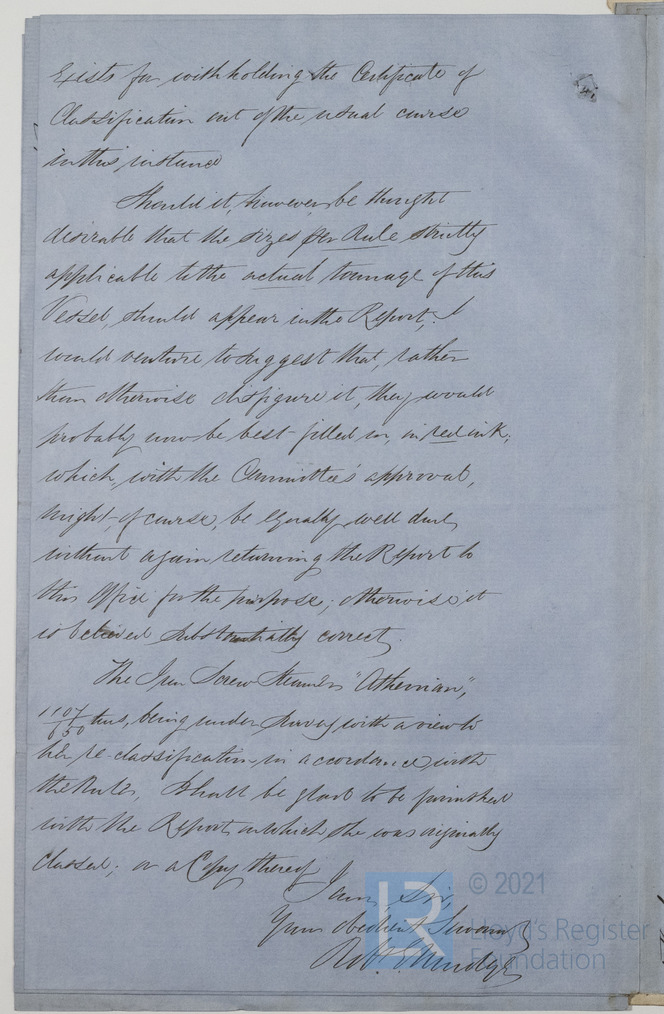 Exists for withholding the Certificate of
Classification out of the usual course
in this instance
Should it, however, be thought
desirable that the sizes per Rule strictly
applicable to the actual tonnage of this
Vessel, should appear in the Report, I
would venture to suggest that, rather
than otherwise disfigure it, they would
probably now be best filled in, in red ink;
which, with the Committee's approval,
might, of course, be equally well done
without again returning the Report to
this Office for the purpose; otherwise it
is believed substantially correct.
The Iron Screw Steamer "Athenian",
1107/650 tons, being under survey with a view to
her re-classification in accordance with
the Rules, I shall be glad to be furnished
with the Report on which she was originally
classed; or a Copy thereof
I am, Sir,
Your obedient Servant
Robt.
© 2021
LR
Lloyd's Register
Foundation